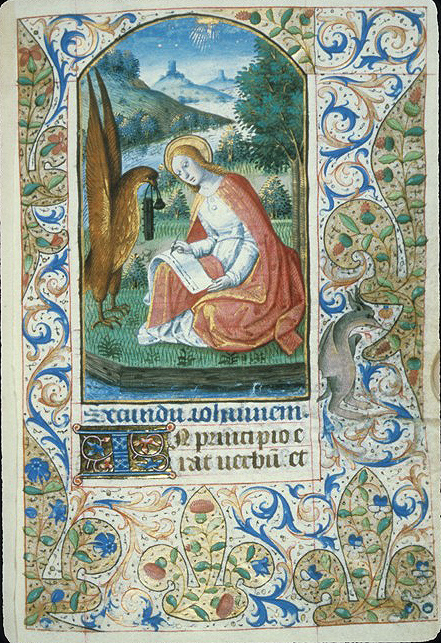 Secundū iohannem.
IN principio e
rat uerbū. et